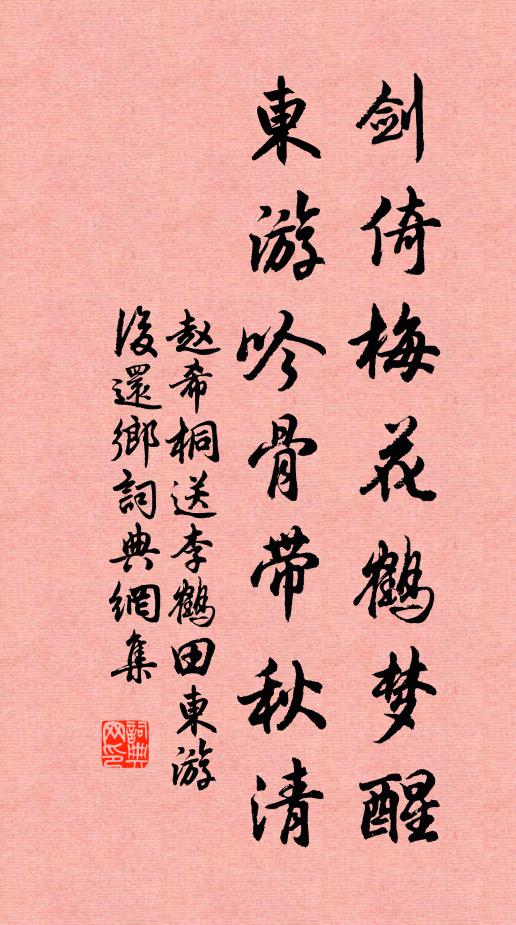 剑倚梅花鹤梦醒
東游吟骨带秋清
赵希桐送李鹤田東游
後還鄉詞典網集
詞典
网印